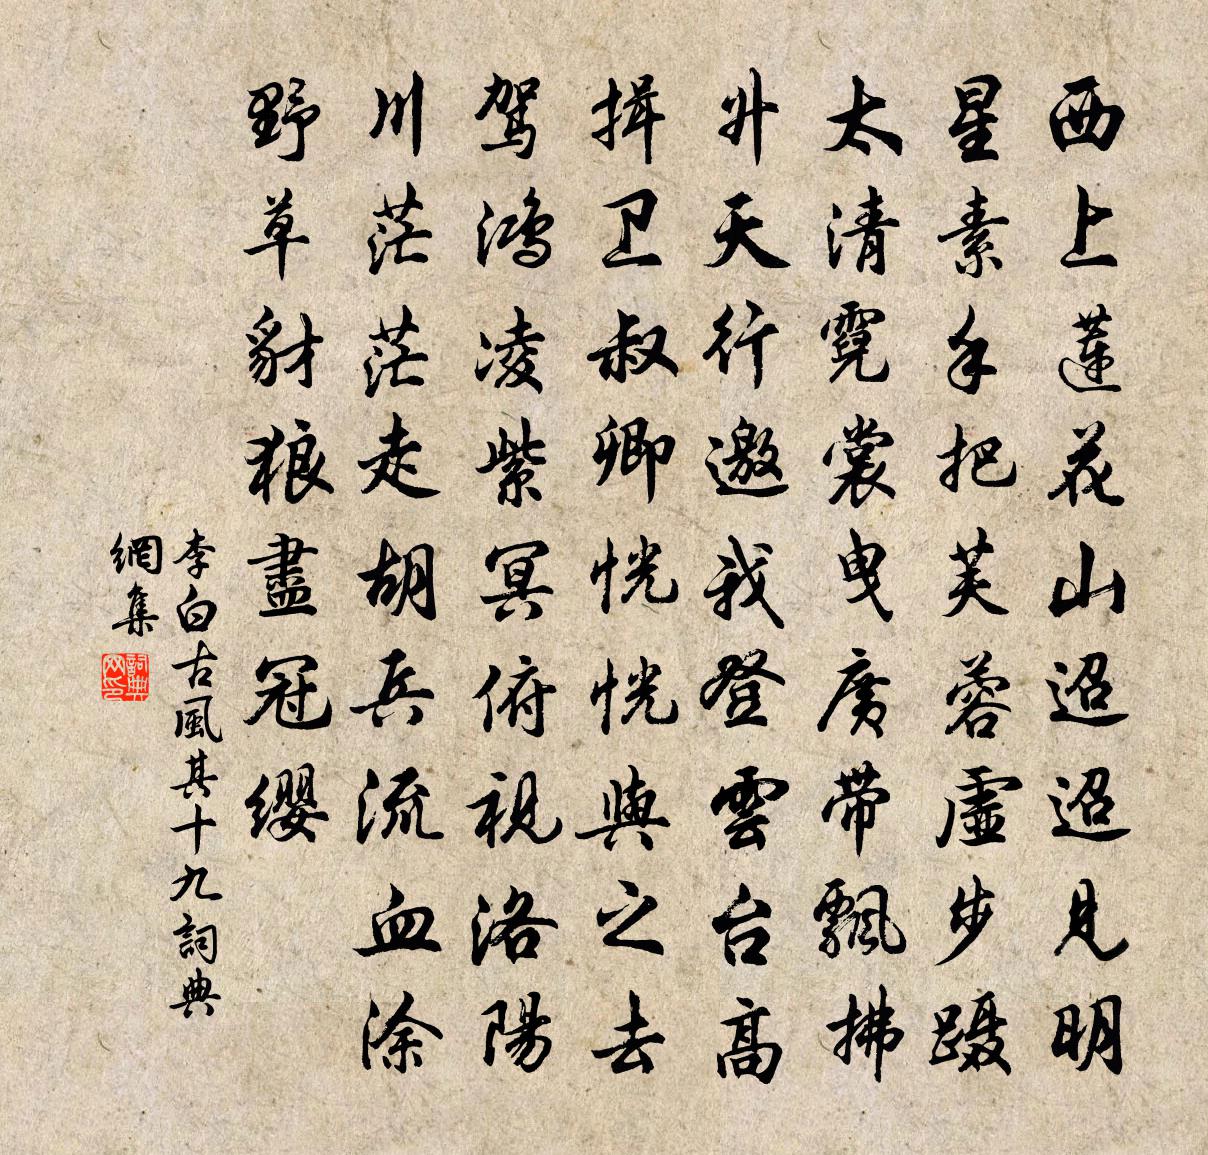 西上蓮花山迢迢見明
星素手把芙蓉虛步蹑
太清霓裳曳廣带飄拂
升天行邀我登雲台高
揖卫叔卿恍恍與之去
駕鴻凌紫冥俯視洛陽
川茫茫走胡兵流血涂
野草豺狼盡冠纓
李白古風其十九詞典
網集
詞典
网印